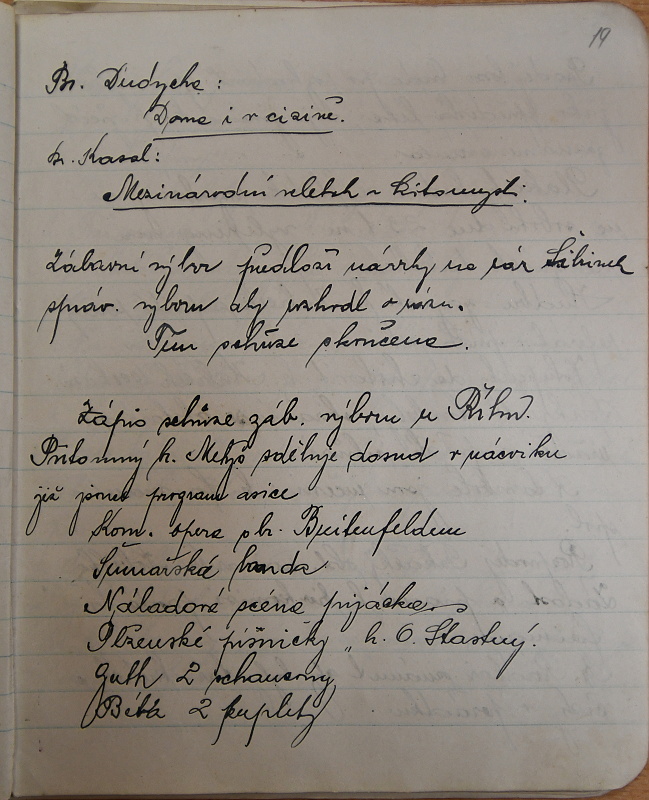 19
Br. Dudycha:
Doma i v cizině.
br. Kasal:
Mezinárodní slet v Litomyšli.
Zábavní výbor předloží návrhy na ráz Šibřinek
správ. výboru aby rozhodl o rázu.
Tím schůze skončena.
Zápis schůze záb. výboru u Říhů.
Přítomný br. Metyš sděluje dosud v nácviku
již jsou program asice
Kom. opera s br. Breitenfeldem
Šumařská banda
Náladová scéna pijácka
Plzeňské písničky „ br. O. Štastný.
Guth 2 schauerny
Béba 2 kuplety